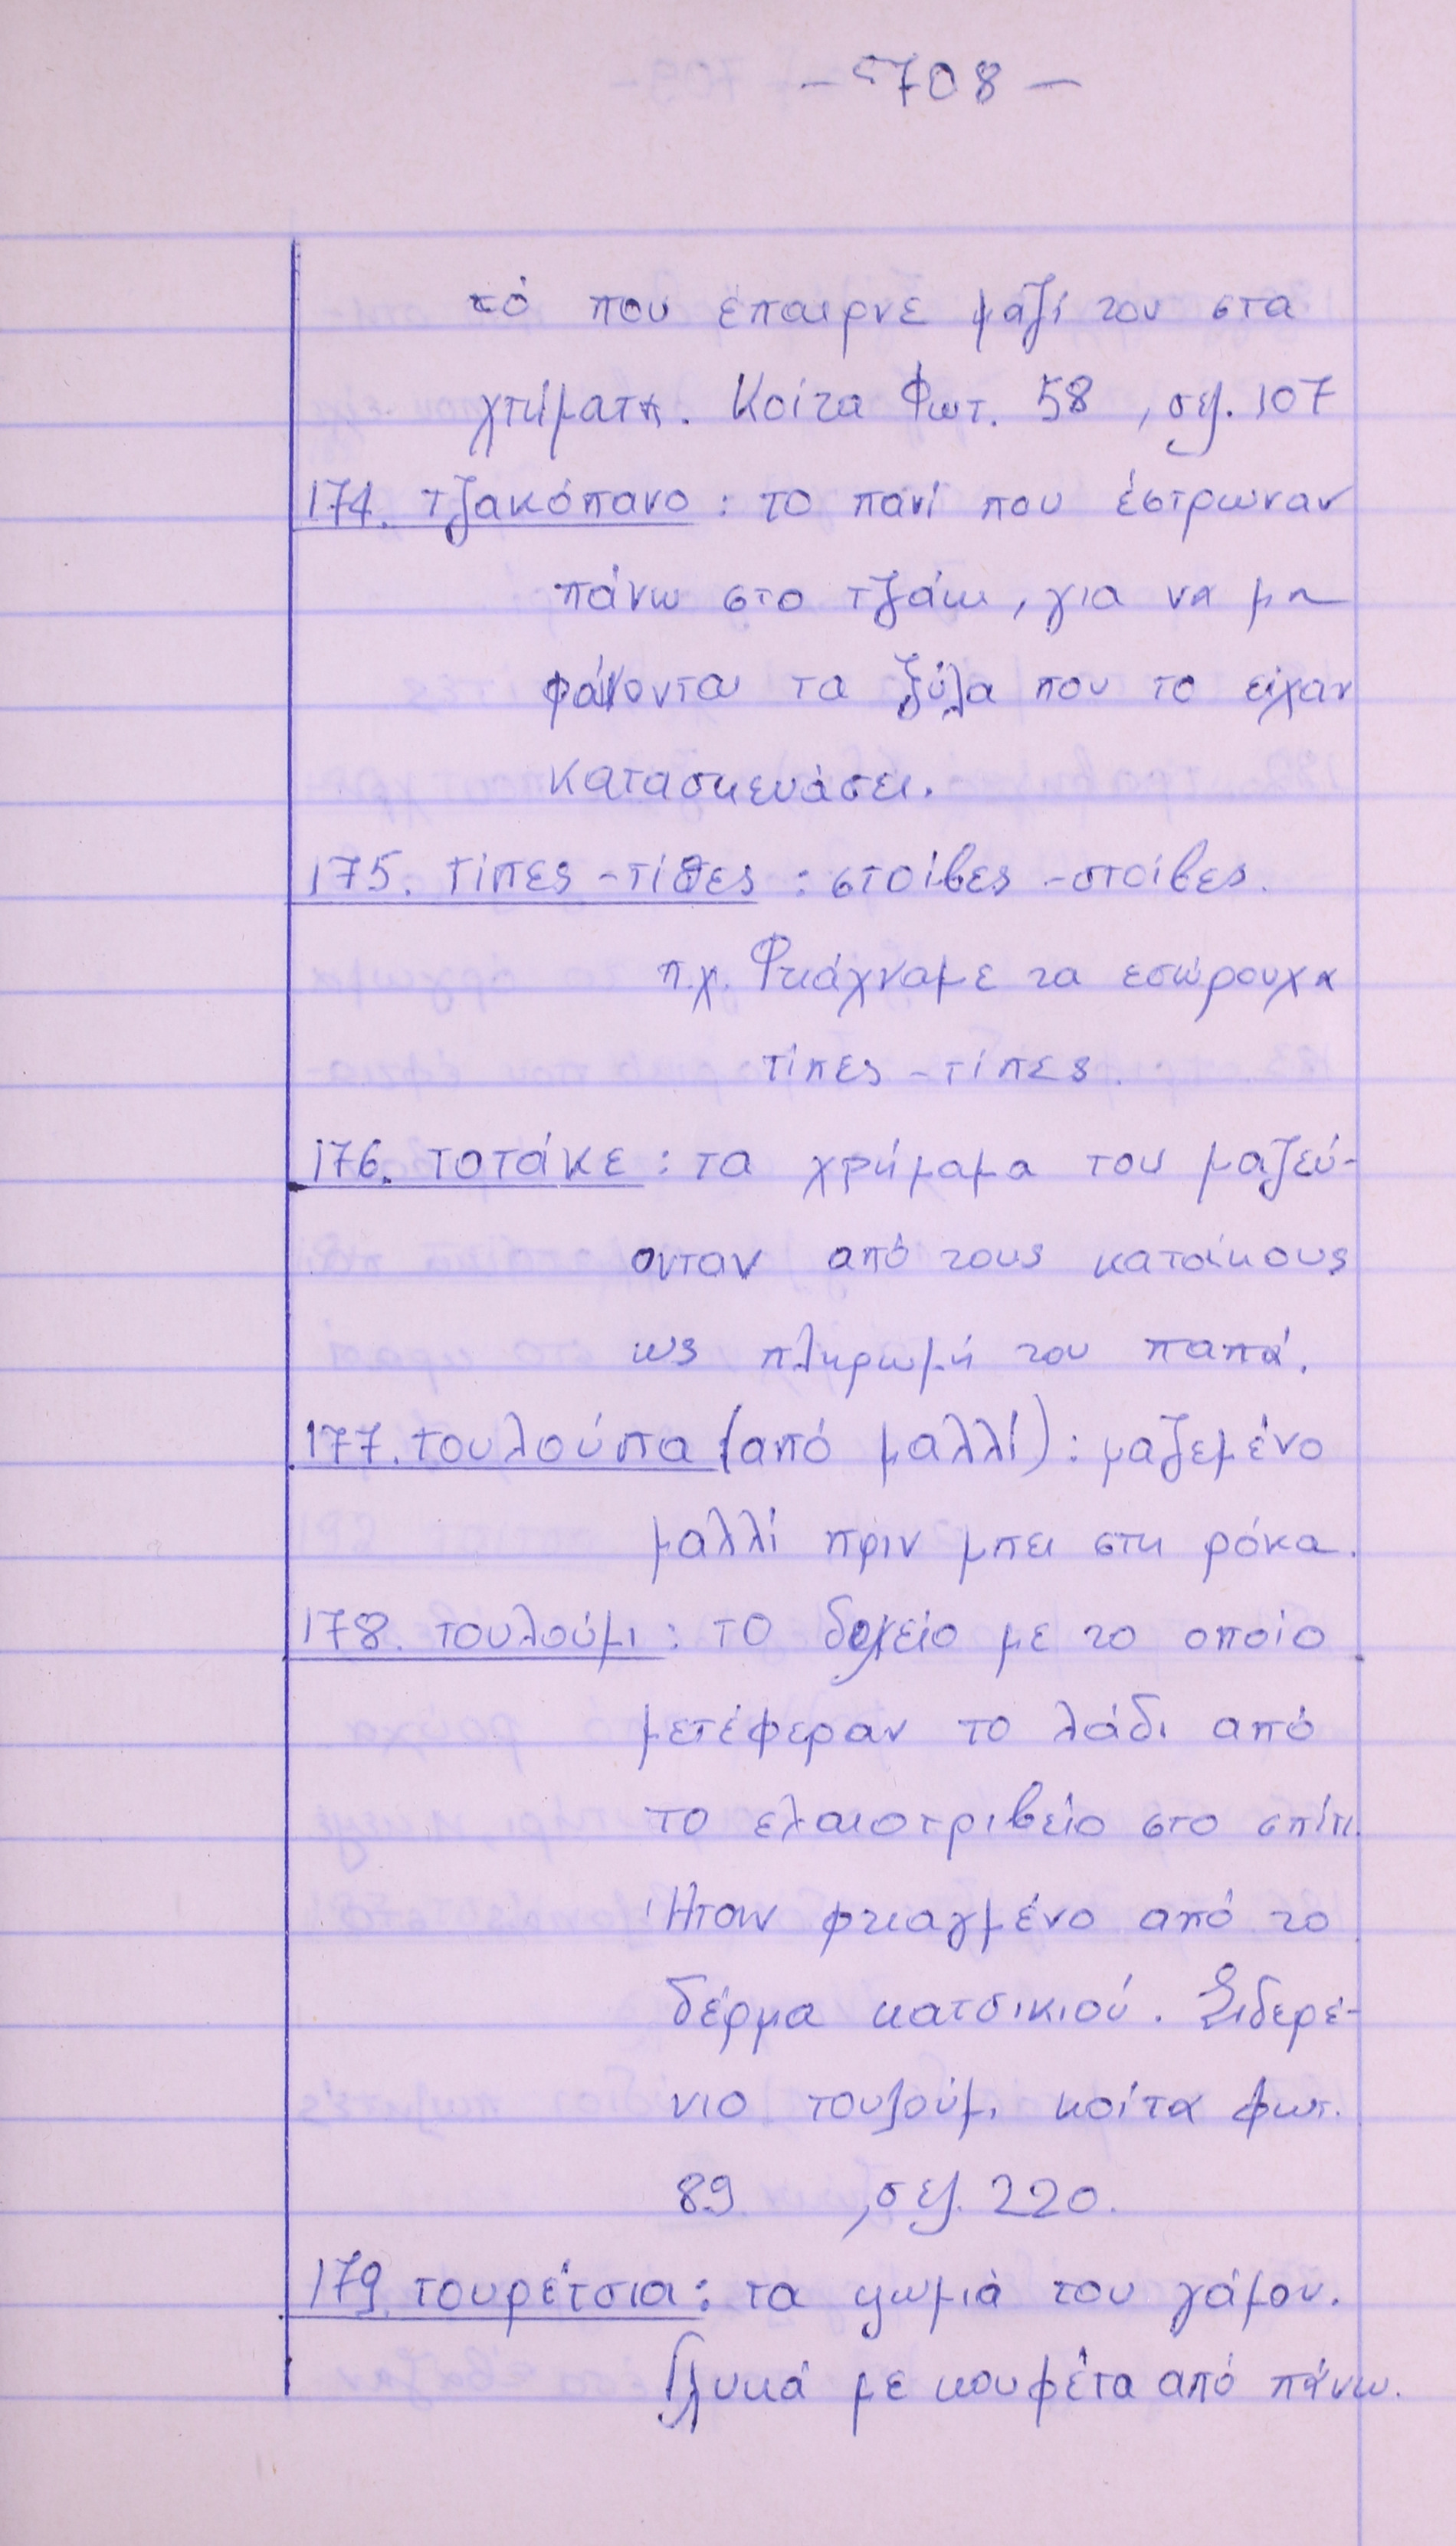 - 708 -
τό που έπαιρνε μαζί του στα
χτήματα. Κοίτα Φωτ. 58, σελ. 107
174. τζακόπανο : το πανί που έστρωναν
πάνω στο τζάκι, για να μη
φαίνονται τα ξύλα που το είχαν
κατασκευάσει.
175. τίπες - τίπες : στοίβες - στοίβες.
π.χ. Φτιάχναμε τα εσώρουχα
τίπες - τίπες.
176. τοτάκε : τα χρήμαμα του μαζεύ-
ονταν από τους κατοίκους
ως πληρωμή του παπά.
177. τουλούπα (από μαλλί) : μαζεμένο
μαλλί πριν μπει στη ρόκα.
178. τουλούμι : το δοχείο με το οποίο
μετέφεραν το λάδι από
το ελαιοτριβείο στο σπίτι.
Ήταν φτιαγμένο από το
δέρμα κατσικιού. Σιδερέ-
νιο τουλούμι κοίτα φωτ.
89 , σελ. 220.
179. τουρέτσια : τα ψωμιά του γάμου.
Γλυκά με κουφέτα από πάνω.